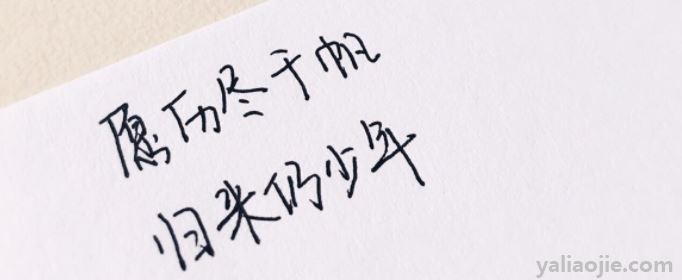 愿历尽千帆
归来仍少年
yaliaojie.com